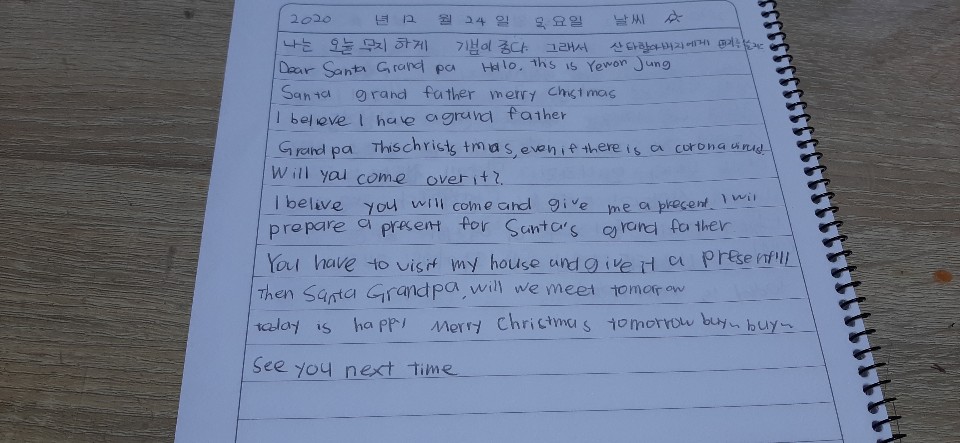 2020 년 12 월 24 일 목요일 날씨 ☆
나는 오늘 무지 하게 기분이 좋다. 그래서 산타할아버지에게
Dear Santa Grand pa Hallo. this is Yewon Jung
Santa grand father merry Chistmas
I beleve I have agrand father
Grand pa Thischrists tmas, even if there is a corona
Will you come over it?
I belive you will come and give me a present. I wil
prepare a present for Santa's grand father
You have to visit my house and give it a present!!!
Then Santa Grandpa, will we meet tomorrow
today is happy Merry Christmas tomorrow buy~ buy~
See you next time